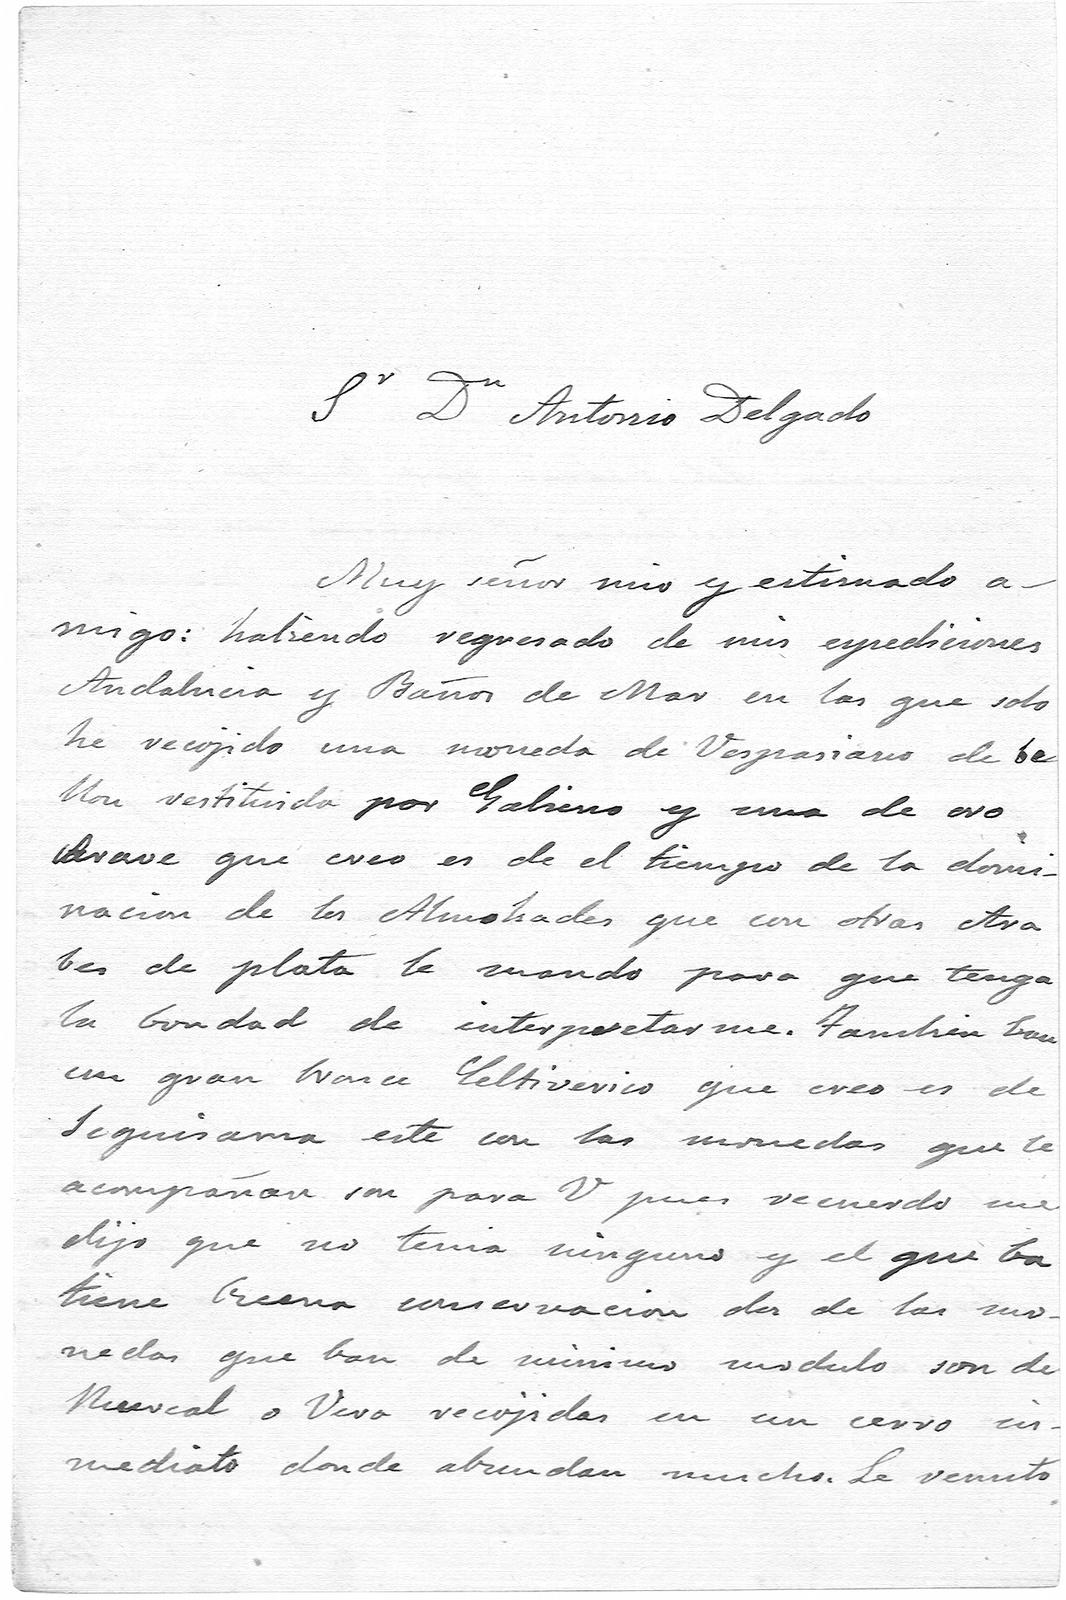 Sr Dn Antonio Delgado
Muy señor mio y estimado a-
migo: habiendo regresado de mis epediciones
Andalucia y Baños de Mar en las que solo
he recojido una moneda de Vespasiano de be
llon restituida por Galieno y una de oro
Arave que creo es de el tiempo de la domi-
nacion de los Almohades que con otras Ara
bes de plata le mando para que tenga
la bondad de interpretarme. Tambien ban
un gran bronce Celtiverico que creo es de
Seguisama este con las monedas que le
acompañan son para V pues recuerdo me
dijo que no tenia ninguno y el que ba
tiene buena conservacion dos de las mo-
nedas que ban de minimo modulo son de
o Vera recojidas en un cerro in-
mediato donde abundan mucho. Le remito